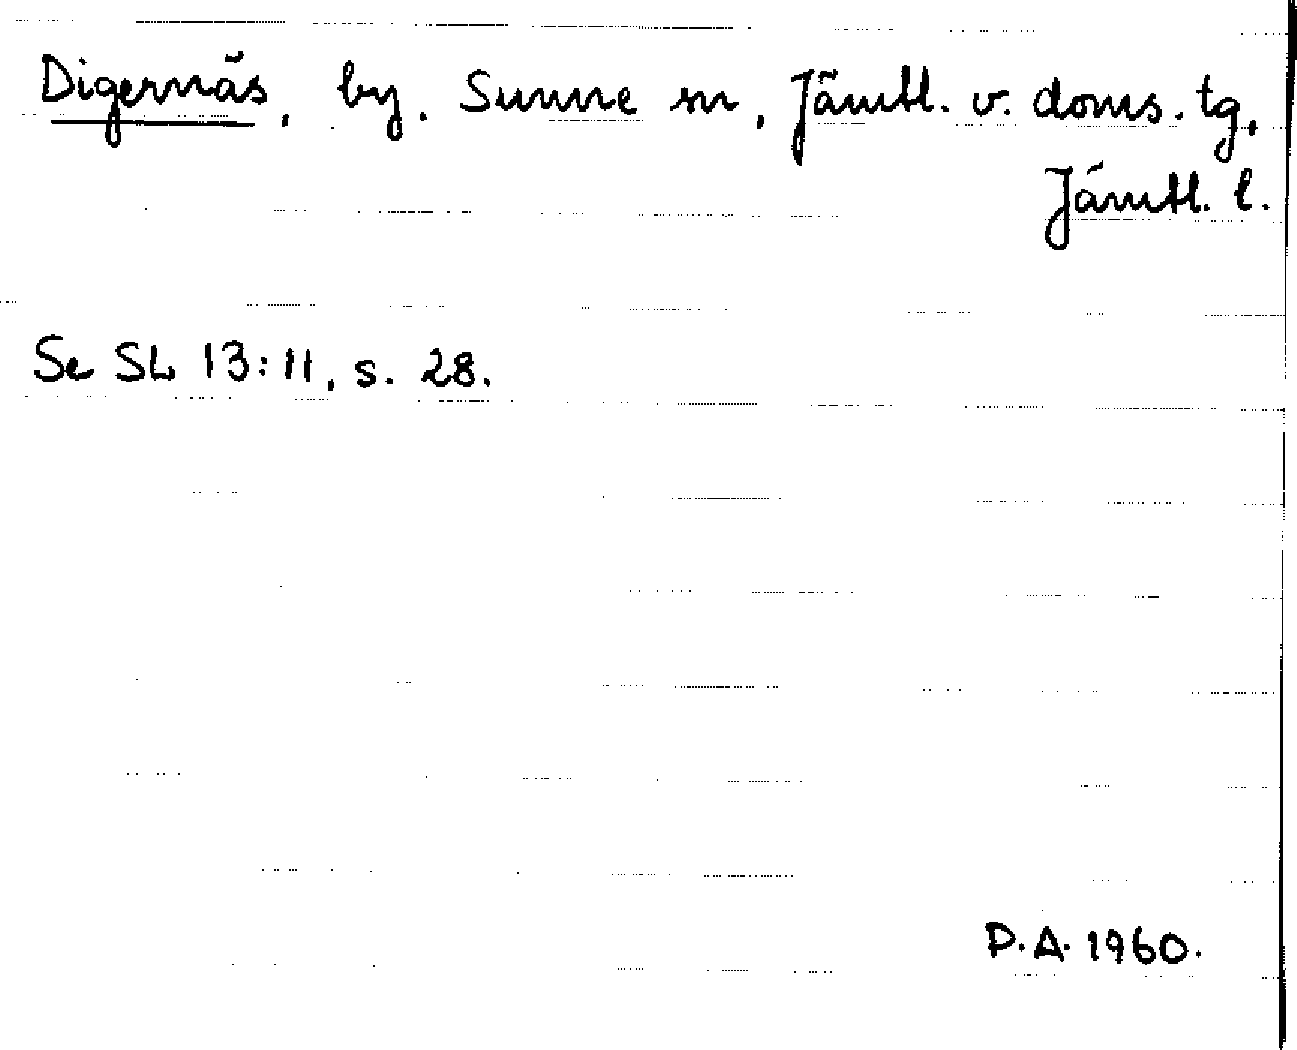 Digernäs, by. Sunne sn, Jämtl. v. doms. tg,
Jämtl. l.
Se SL 13:11, s. 28.
P.A. 1960.